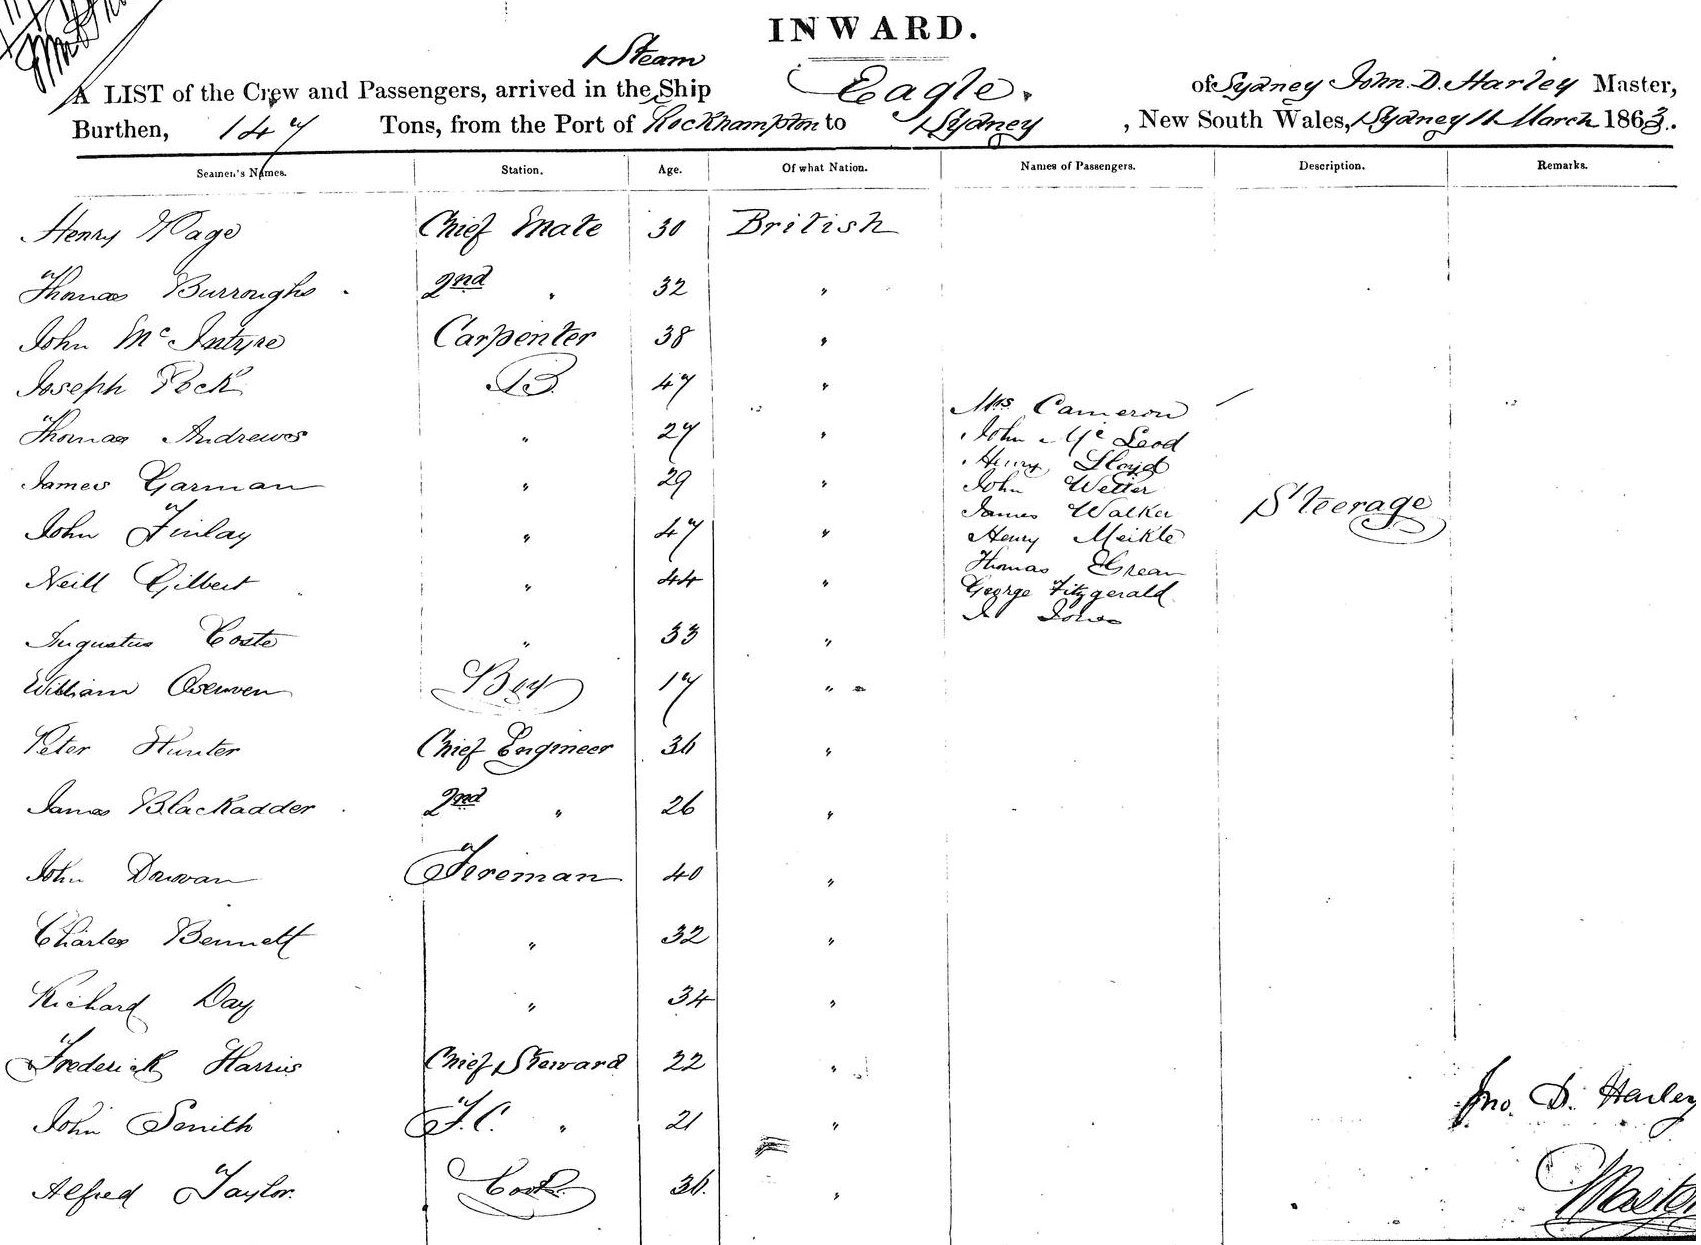 INWARD.
Steam
A LIST of the Crew and Passengers, arrived in the Ship Eagle. of Sydney John. D. Harley Master,
Burthen, 147 Tons, from the Port of Rockhampton to Sydney, New South Wales, Sydney 11 March 1863.
Seamen's Names. Station. Age. Of what Nation. Names of Passengers. Description. Remarks.
Henry Page Chief Mate 30 British
Thomas Burroughs 2nd " 32 "
John McIntyre Carpenter 38 "
Joseph Peck AB 47 "
Mrs Cameron
Thomas Andrewes " 27 "
John McLeod
Henry Lloyd
James Garman " 29 "
John Weller
Steerage
James Walker
John Finlay " 47 "
Henry Meikle
Thomas
Neill Gilbert " 44 "
George Fitzgerald
J Jones
Augustus Coste " 33 "
William Boy 17 "
Peter Hunter Chief Engineer 36 "
James Blackadder 2nd " 26 "
John Donovan Fireman 40 "
Charles Bennett " 32 "
Richard Day " 34 "
Frederick Harris Chief Steward 22 "
Jno. D. Harley
John Smith F.C. " 21 "
Alfred Taylor. Cook 36. "
Master